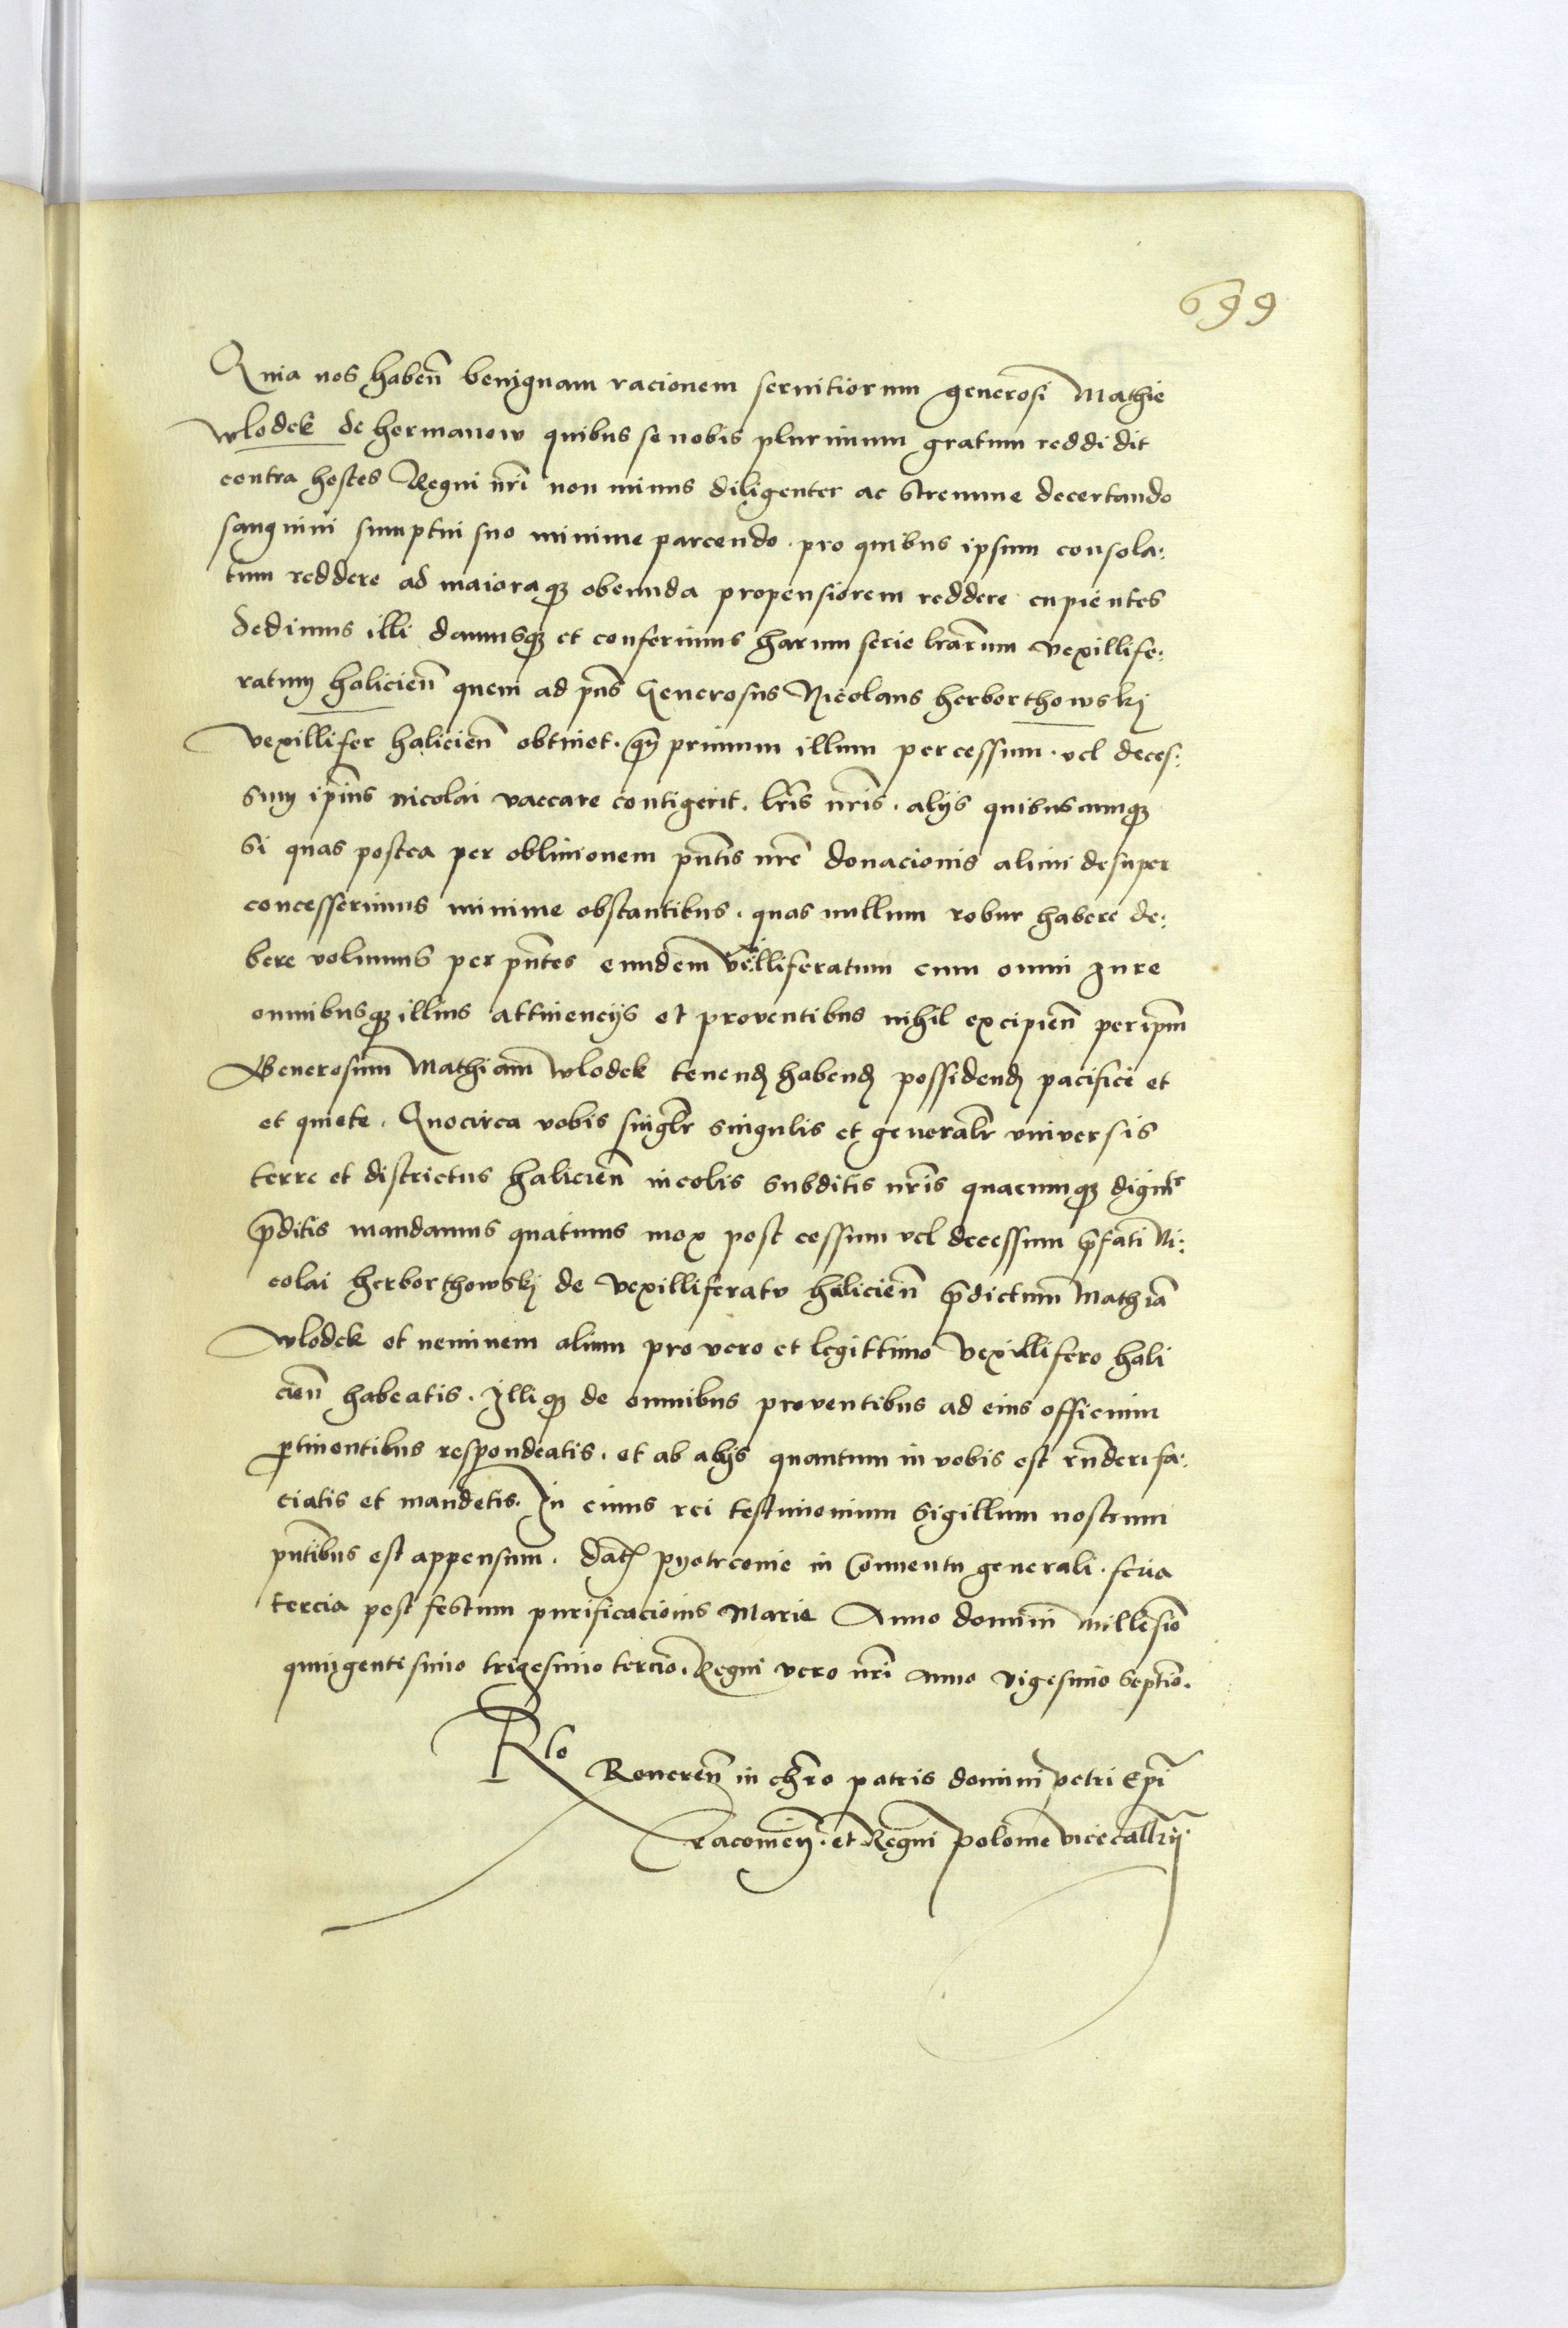 699
Quia nos habeñ benignam racionem seruitiorum generosi Mathie
Wlodek de hermanow quibus se nobis plurimum gratum reddidit
contra hostes Regni nr̃i non minus diligenter ac strenue decertando
sanguini sumptui suo minime parcendo . pro quibus ipsum consola:
tum reddere ad maioraqꝫ obeunda propensiorem reddere cupientes
dedimus illi damusqꝫ et conferimus harum serie lr̃arum vexillife:
ratum halicien̄ quem ad pn̄s Generosus Nicolaus herborthowskj
vexillifer halicien̄ obtinet . qñ primum illum per cessum . vel deces:
sum ip̄ius nicolai vaccare contigerit . lr̃is nr̃is . alijs quibuscumqꝫ
si quas postea per obliuionem pn̄tis nr̃e donacionis alicui desuper
concesserimus minime obstantibus . quas nullum robur habere de:
bere volumus per pn̄tes eundem vexilliferatum cum omni Jure
omnibusqꝫ illius attinencijs et prouentibus nihil excipien̄ per ip̄m
Generosum Mathiam Wlodek tenendꝫ habendꝫ possidendꝫ pacifice et
et quiete . Quocirca vobis singlr̃ singulis et generalr̃ vniuersis
terre et districtus halicien̄ incolis subditis nr̃is quacumqꝫ dignit̃e
p̄ditis mandamus quatinus mox post cessum vel decessum p̄fati Ni:
colai herborthowskj de vexilliferatu halicien̄ p̄dictum Mathiā
Wlodek et neminem alium pro vero et legittimo vexillifero hali
cien̄ habeatis . Illiqꝫ de omnibus prouentibus ad eius officium
ꝑtinentibus respondeatis . et ab alijs quantum in vobis est rñderi fa:
ciatis et mandetis . In cuius rei testimonium sigillum nostrum
pn̄tibus est appensum . Datꝫ pyotrconie in Conuentu generali . feria
tercia post festum purificacionis Marie Anno dominī Millesīo
quingentesimo trigesimo tercio . Regni vero nr̃i anno vigesimo septīo .
Rlo Reueren̄ in chr̃o patris domini petri Ep̄i
Cracouien̄ . et Regni polonie vicecallr̃ij